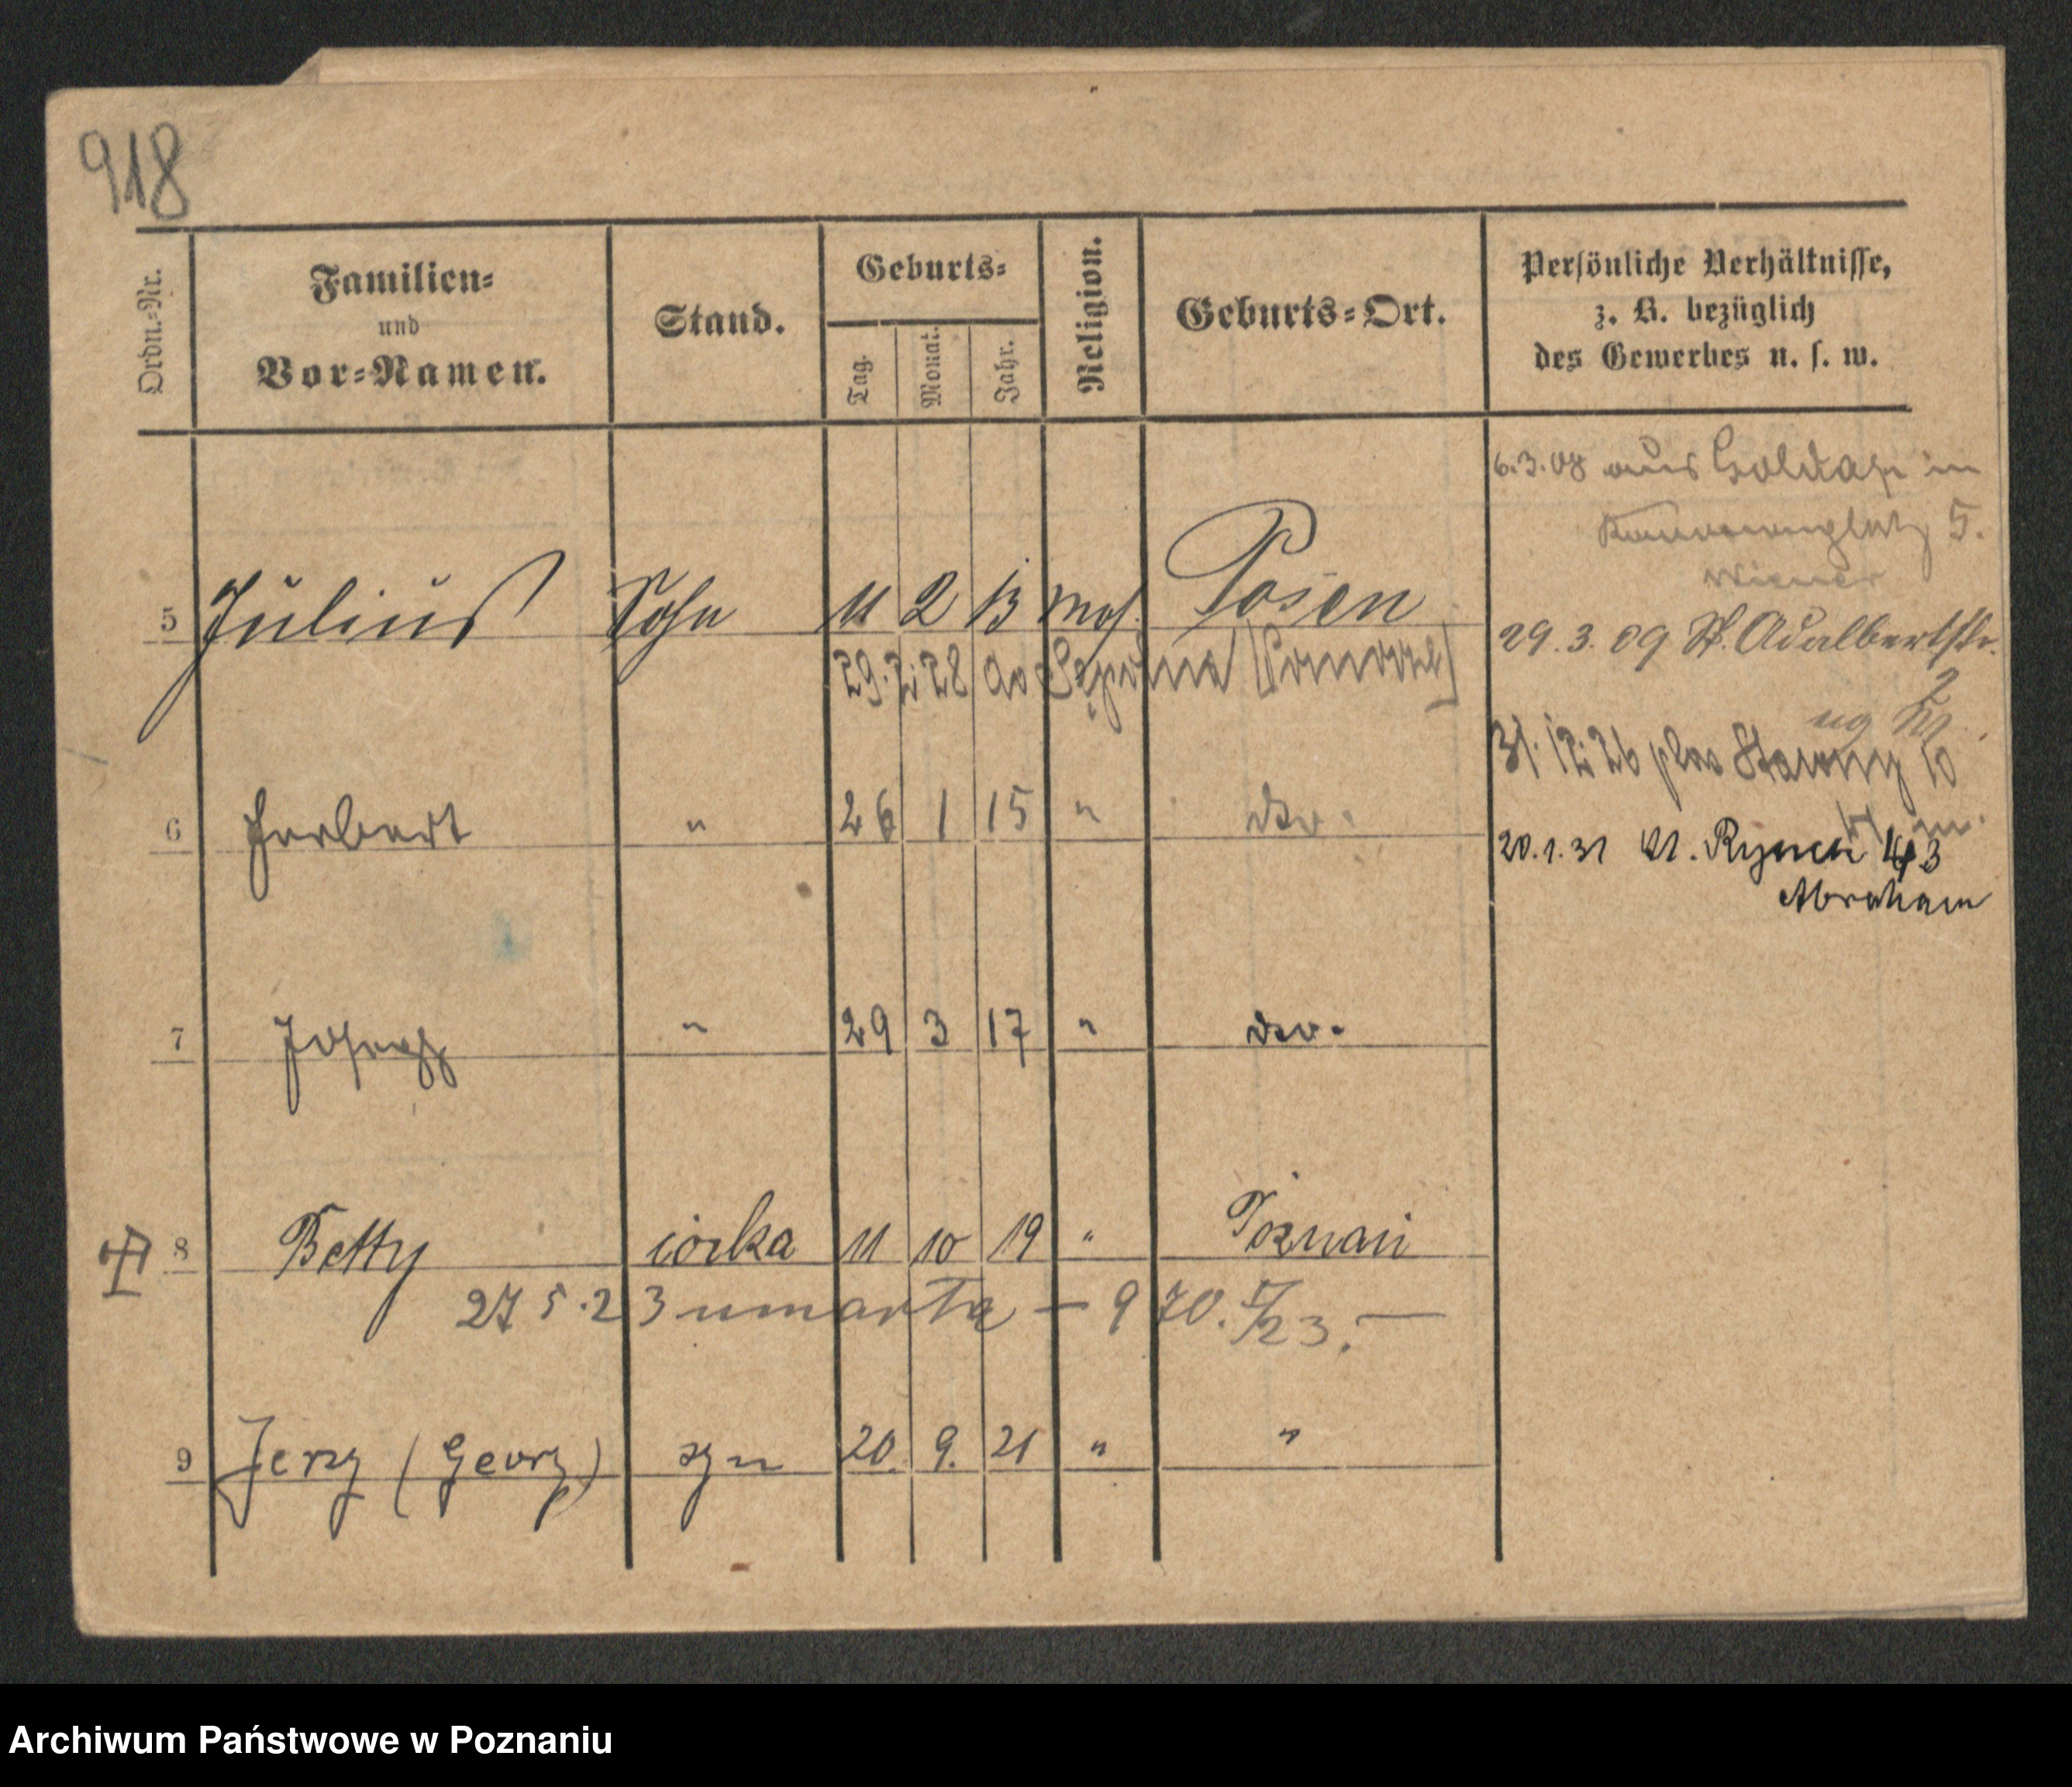 918
Ordn.=Nr.
Familien=
und
Vor=Namen.
Stand.
Geburts=
Tag.
Monat.
Jahr.
Religion.
Geburts=Ort.
Persönliche Verhältnisse,
z. B. bezüglich
des Gewerbes u. s. w.
6.3.08 aus Goldap in
5.
Wiener
5 Julius Sohn 11 2 13 mos. Posen
29.3.09 St. Adalbertstr.
2
29. 28 do
31.12.26 plac 10
6 Herbert " 26 1 15 " do.
20.1.31 St. Rynek 43
Abraham
7 Joseph " 29 3 17 " do.
8 Betty córka 11 10 19 " Poznań
27 5.23 umarła — 970.5/23.—
9 Jerzy (Georg) syn 20. 9. 21 " "
Archiwum Państwowe w Poznaniu